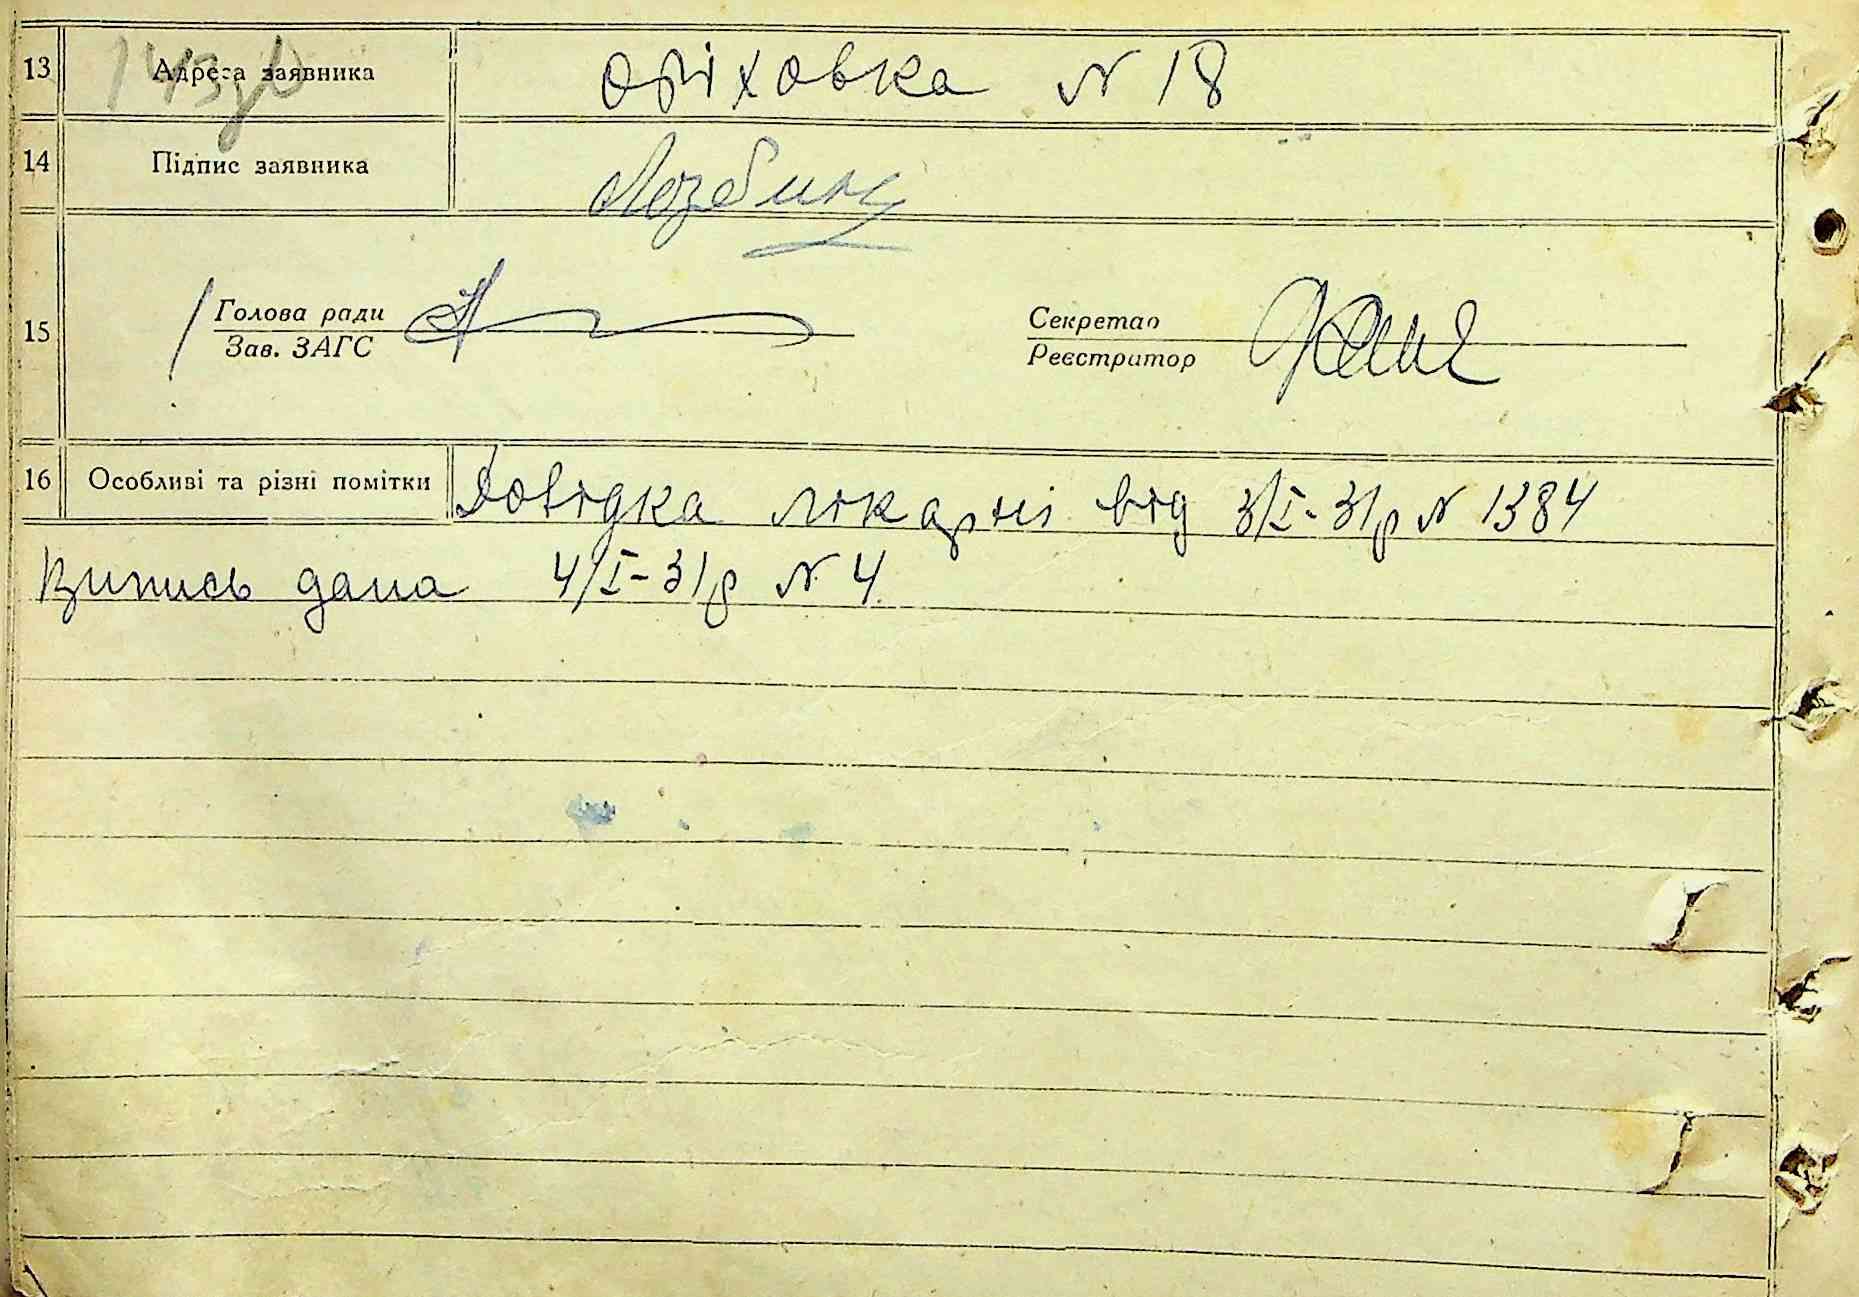 13 Адреса заявника Оріховка № 18
14 Підпис заявника
15 Голова ради Секретар
Зав. ЗАГС Реєстратор
16 Особливі та різні помітки Довідка лікарні від 3/I-31р № 1384
Випись дана 4/I-31р № 4